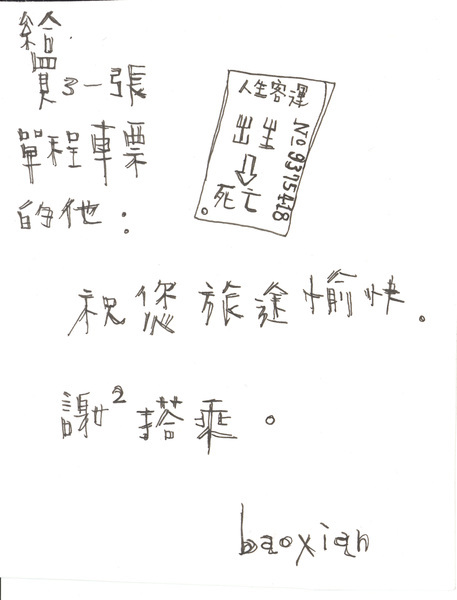 給
買了一張
單程車票
的他：
人生客運
出生
⇩
死亡
No 9375418
祝您旅途愉快。
謝² 搭乘。
baoxian